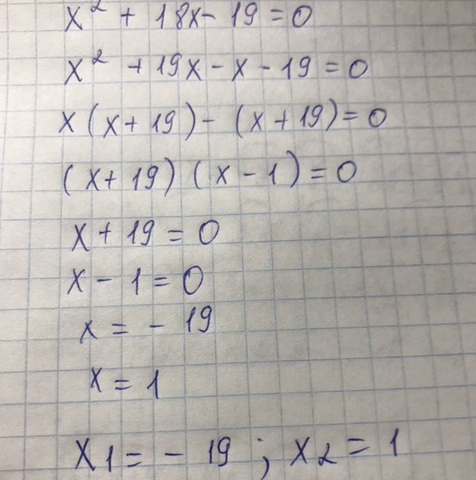 x² + 18x - 19 = 0
x² + 19x - x - 19 = 0
x(x + 19) - (x + 19) = 0
(x + 19)(x - 1) = 0
x + 19 = 0
x - 1 = 0
x = - 19
x = 1
x1 = - 19 ; x2 = 1